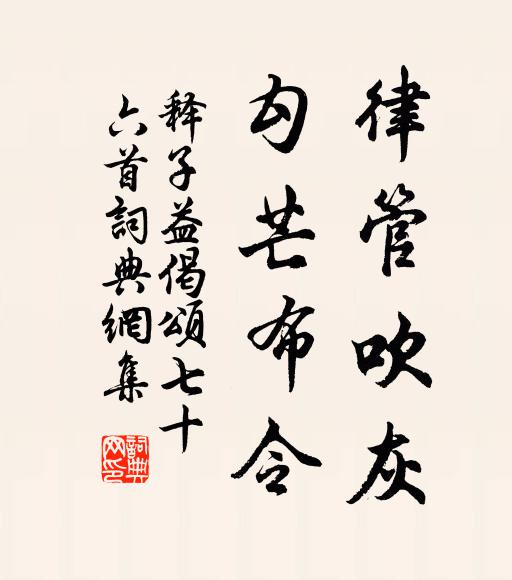 律管吹灰
勾芒布令
释子益偈頌七十
六首詞典網集
詞典网印